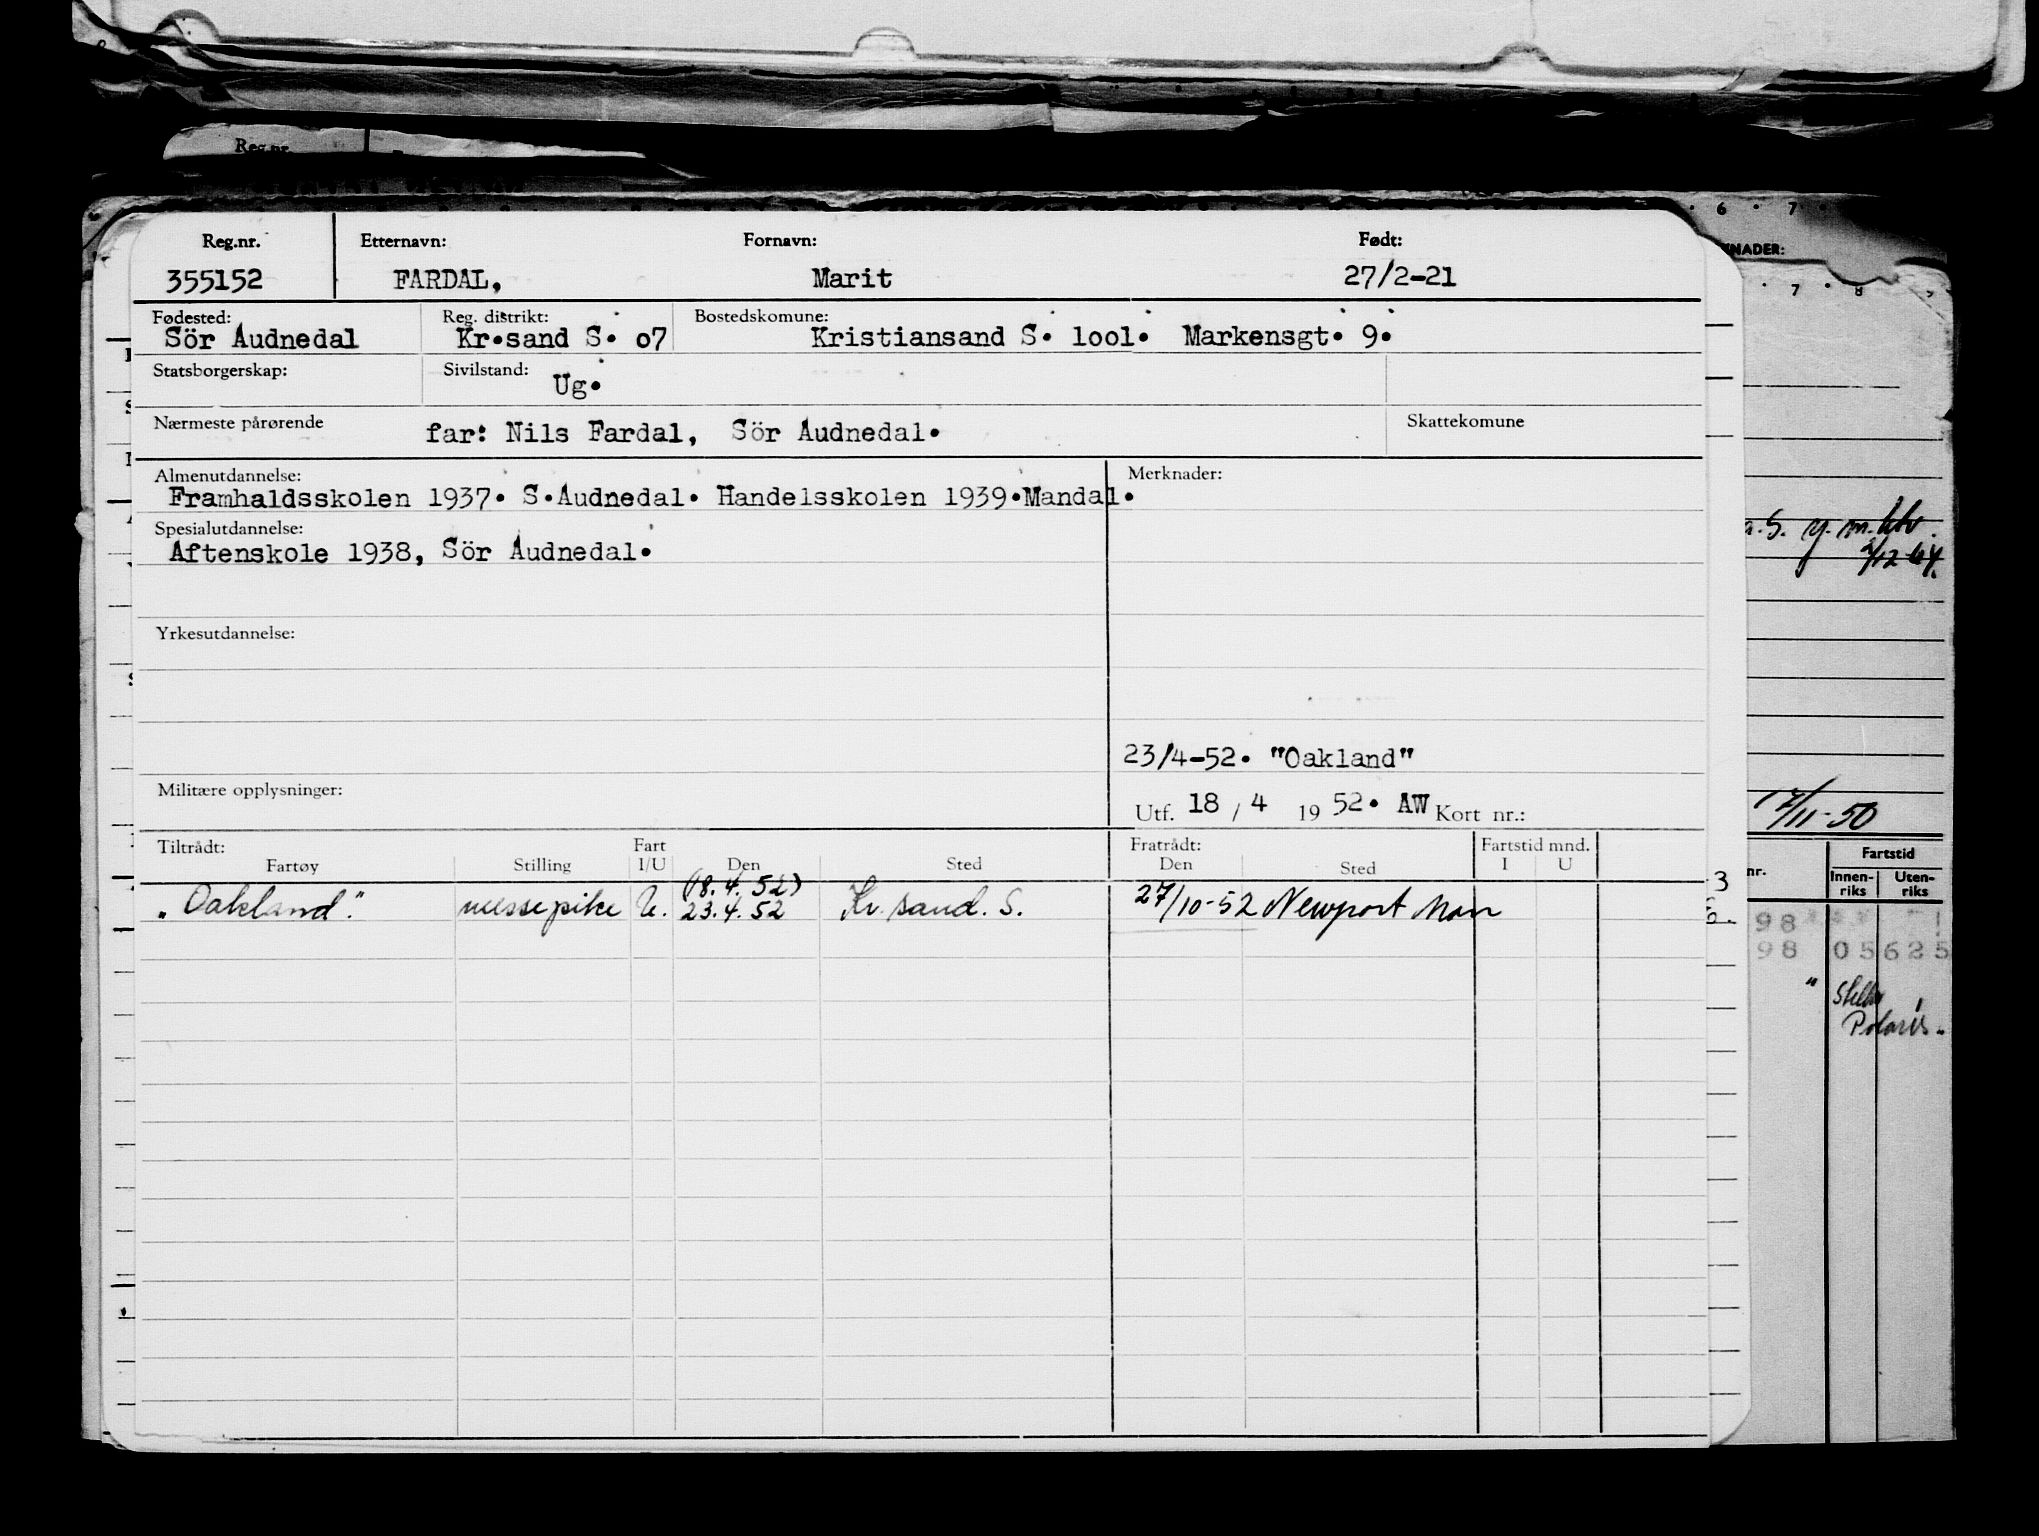 Reg.nr.
6 · 7 ·
NADER:
· 7 · 8
Reg.nr. Etternavn: Fornavn: Født:
355152 FARDAL, Marit 27/2-21
Fødested: Reg. distrikt: Bostedskomune:
Sör Audnedal Kr.sand S. o7 Kristiansand S. lool. Markensgt. 9.
Statsborgerskap: Sivilstand: Ug.
Nærmeste pårørende far: Nils Fardal, Sör Audnedal. Skattekomune
Almenutdannelse: Merknader:
Framhaldsskolen 1937. S.Audnedal. Handelsskolen 1939.Mandal.
Spesialutdannelse:
Aftenskole 1938, Sör Audnedal.
2/12 64.
Yrkesutdannelse:
23/4-52. "Oakland"
Militære opplysninger:
Utf. 18 / 4 19 52. AW Kort nr.:
17/11-50
Tiltrådt: Fart Fratrådt: Fartstid mnd.
Fartøy Stilling I/U Den Sted Den Sted I U
nr. Fartstid
Innen-riks Uten-riks
(18.4.52)
„Oakland." messepike U. 23.4.52 Kr.sand. S. 27/10-52 Newport Mon
3
98
98 05625
" Stella
Polaris.